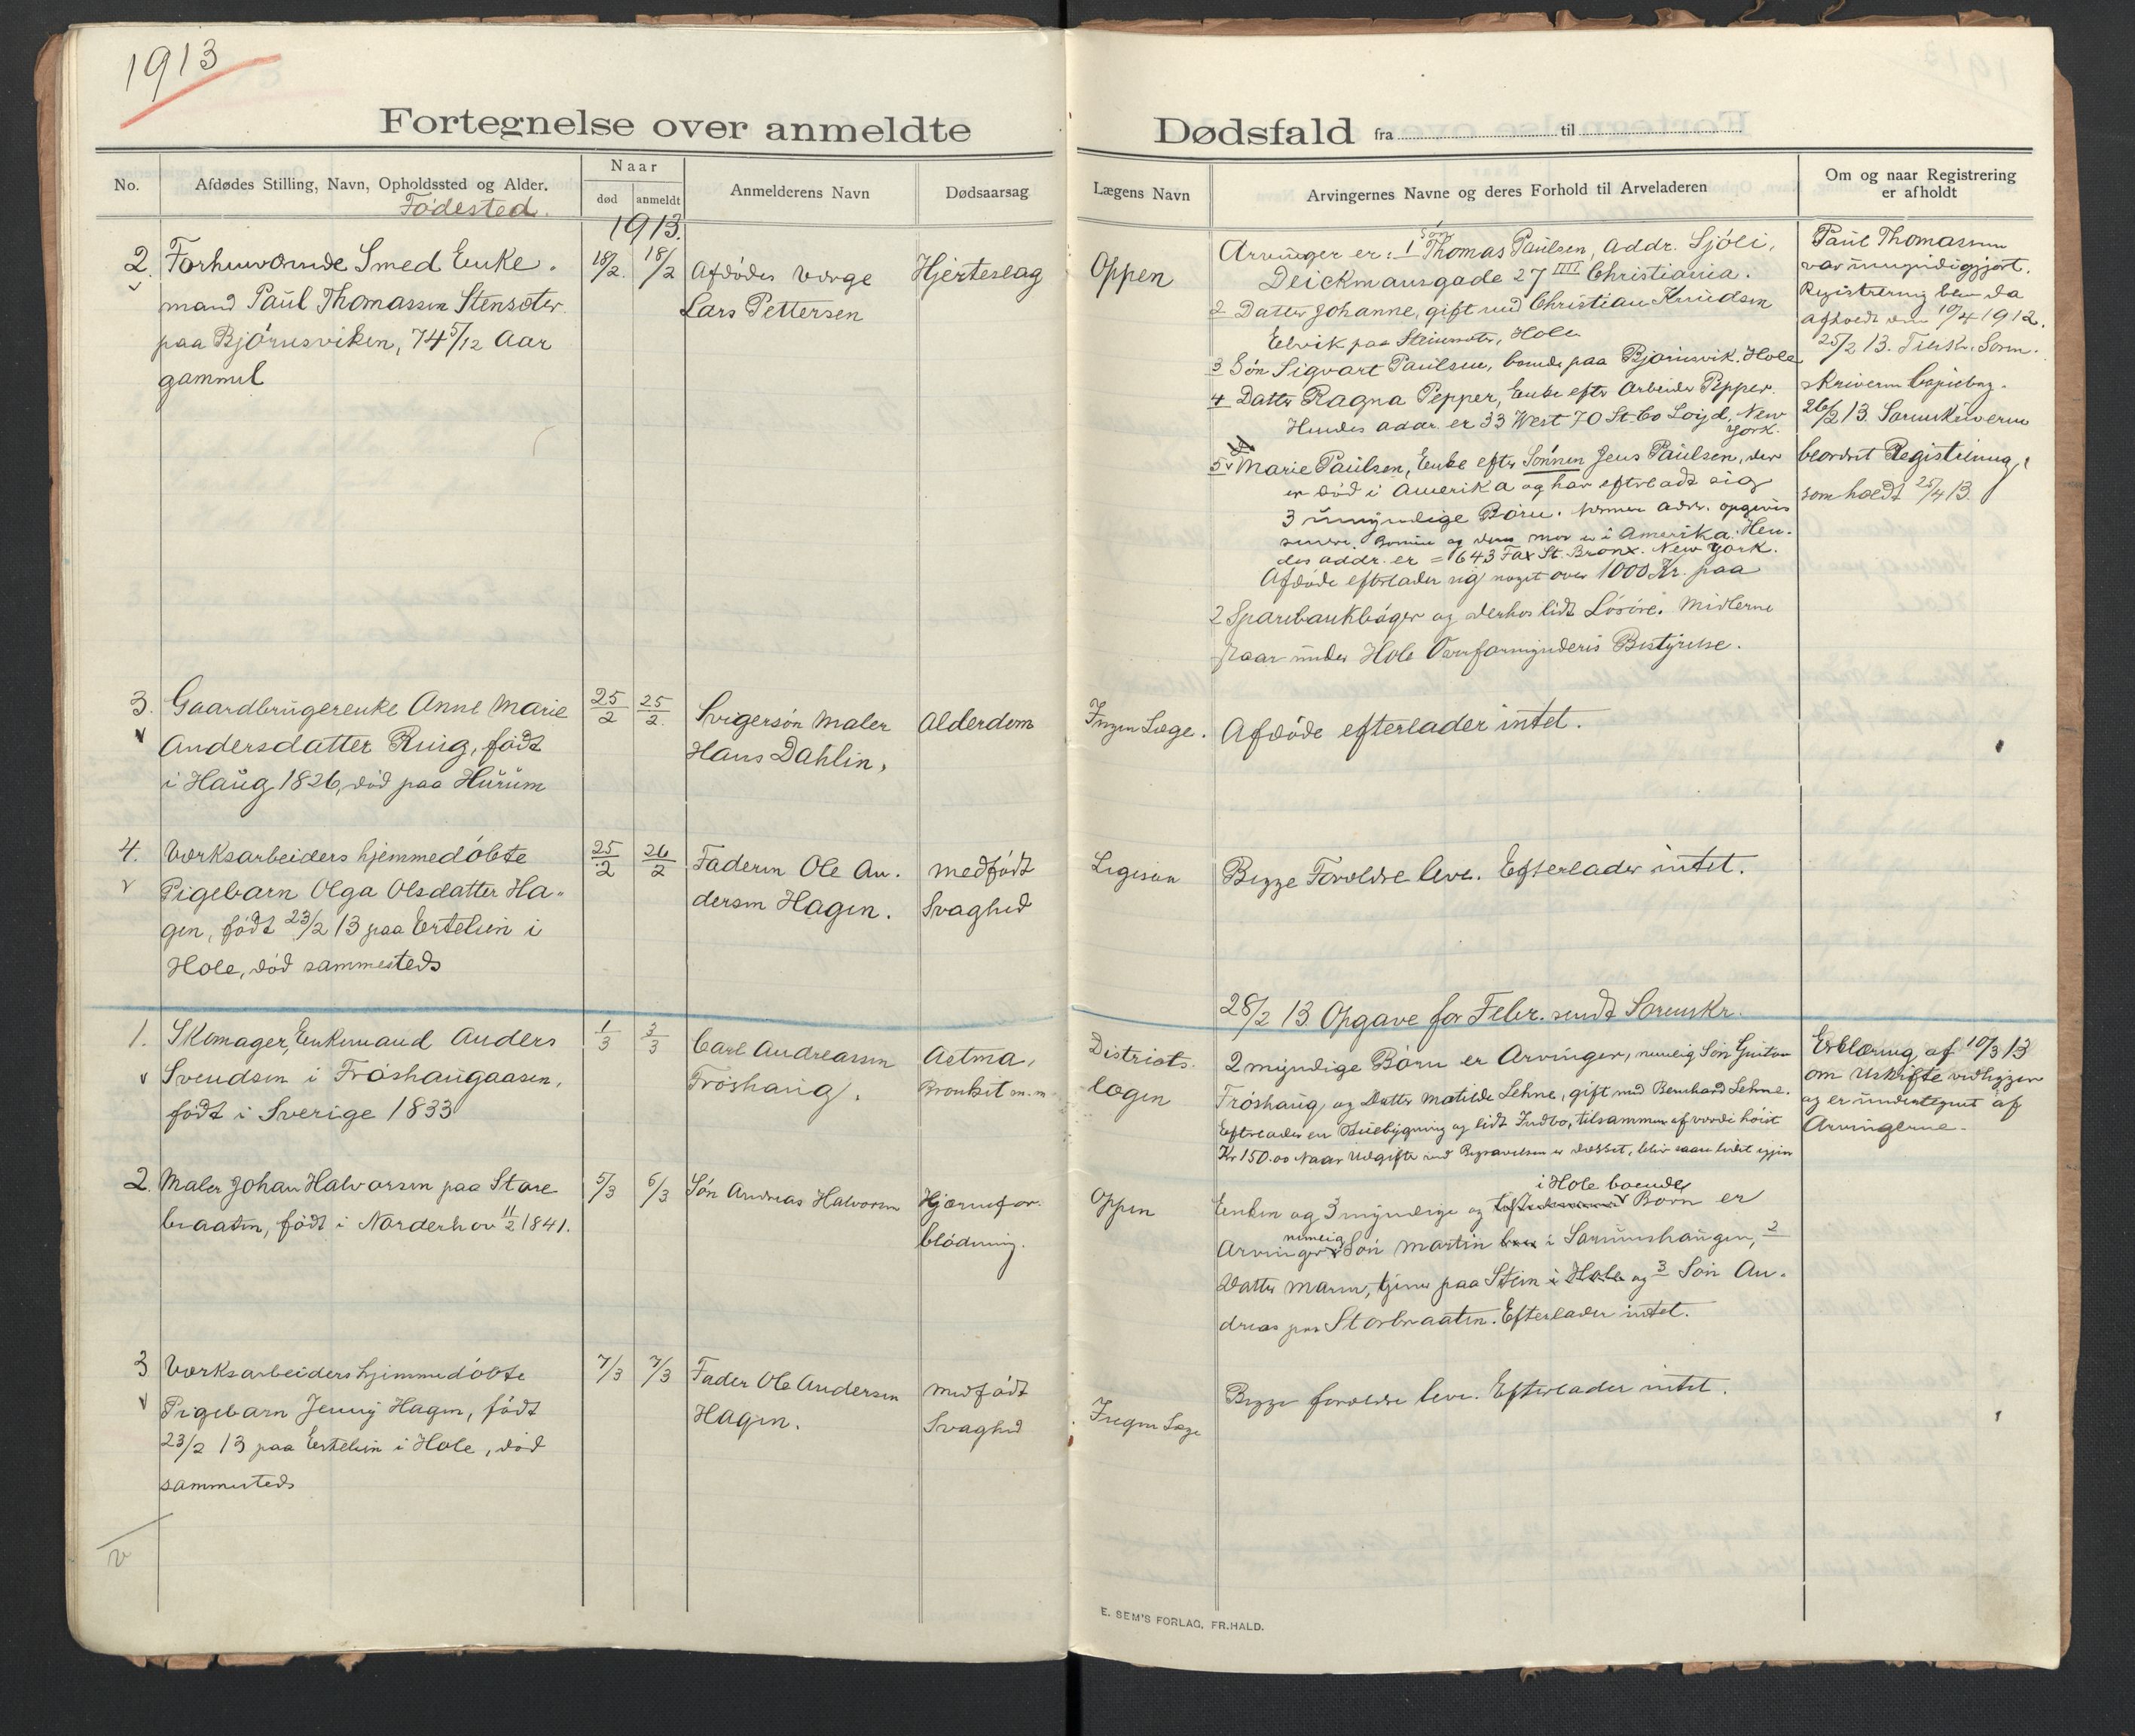 1913
Fortegnelse over anmeldte
No.
Afdødes Stilling, Navn, Opholdssted og Alder.
Fødested.
Naar
død
anmeldt
Anmelderens Navn
Dødsaarsag
1913.
2.
Forhenværende Smed Enke-
mand Paul Thomassen Stensæter
paa Bjørnsviken, 74 5/12 Aar
gammel
18/2.
18/2
Afdødes Værge
Lars Pettersen
Hjerteslag
3.
Gaardbrugerenke Anne Marie
Andersdatter Ruig, født
i Haug 1826, død paa Hurum
25/2
25/2.
Svigersøn Maler
Hans Dahlin,
Alderdom
4.
Værksarbeiders hjemmedøbte
Pigebarn Olga Olsdatter Ha-
gen, født 23/2 13 paa Ertelien i
Hole, død sammesteds
25/2
26/2
Faderen Ole An-
dersen Hagen.
Medfødt
Svaghed
1.
Skomager, Enkemand Anders
Svendsen i Frøshaugaasen,
født i Sverige 1833
1/3
3/3
Carl Andreassen
Frøshaug.
Astma,
Bronkit m.m.
2.
Maler Johan Halvorsen paa Store-
braaten, født i Norderhov 11/2 1841.
5/3
6/3
Søn Andreas Halvorsen
Hjernefor-
blødning.
3
Værksarbeiders hjemmedøbte
Pigebarn Jenny Hagen, født
23/2 13 paa Ertelien i Hole, død
sammesteds
7/3
7/3
Fader Ole Andersen
Hagen.
Medfødt
Svaghed
Dødsfald fra til
Lægens Navn
Arvingernes Navne og deres Forhold til Arveladeren
Om og naar Registrering
er afholdt
Oppen
Arvinger er: 1 Søn Thomas Paulsen, addr. Sjöli,
Deickmansgade 27 IIII Christiania.
2 Datter Johanne, gift med Christian Knudsen
Elvik paa Steinsæter, Hole
3 Søn Sigvart Paulsen, boende paa Bjørnsvik, Hole
4 Datter Ragna Pepper, Enke efter Arbeider Pepper.
Hendes addr. er 33 West 70 St. Co Loyd, New
York.
5 Marie Paulsen, Enke efter Sønnen Jens Paulsen, der
er død i Amerika og har efterladt sig
3 umyndige Børn. hvornes adr. opgives
senere. Børnene og deres mor er i Amerika. Hen-
des addr. er = 643 Fax St. Bronx. New York.
Afdøde efterlader sig noget over 1000 Kr. paa
2 Sparebankbøger og derhos lidt Løsøre. Midlerne
staar under Hole Overformynderis Bestyrelse.
Paul Thomassen
var umyndiggjort.
Registrering blev da
afholdt den 10/4 1912.
25/2 13. Tilsk. Soren-
skriveren Copiebog.
26/2 13. Sorenskriveren
beordret Registrering,
som holdt 25/4 13.
Ingen Læge.
Afdøde efterlader intet.
Begge Forældre lever. Efterlader intet.
28/2 13 Opgave for Febr. sendt Sorenskr.
Distrikts-
lægen
2 myndige Børn er Arvinger, nemlig Søn Gustav
Frøshaug, og Datter Matilde Lehne, gift med Bernhard Lehne.
Efterlader en Stuebygning og lidt Indbo, tilsammen af værdi høist
Kr 150.00 Naar Udgifter ved Begravelsen er dækket, blir saare lidet igjen
Erklæring af 10/3 13
om Uskifte vedligger
og er undertegnet af
Arvingerne.
Oppen
i Hole boende
Enken og 3 myndige og Børn er
Arvinger nemlig Søn Martin i Sørumshaugen, 2
Datter Maren, tjener paa Stein i Hole og 3 Søn An-
dreas paa Storbraaten. Efterlader intet.
Ingen Læge
Begge forældre lever. Efterlader intet.
E. SEM'S FORLAG, FR.HALD.